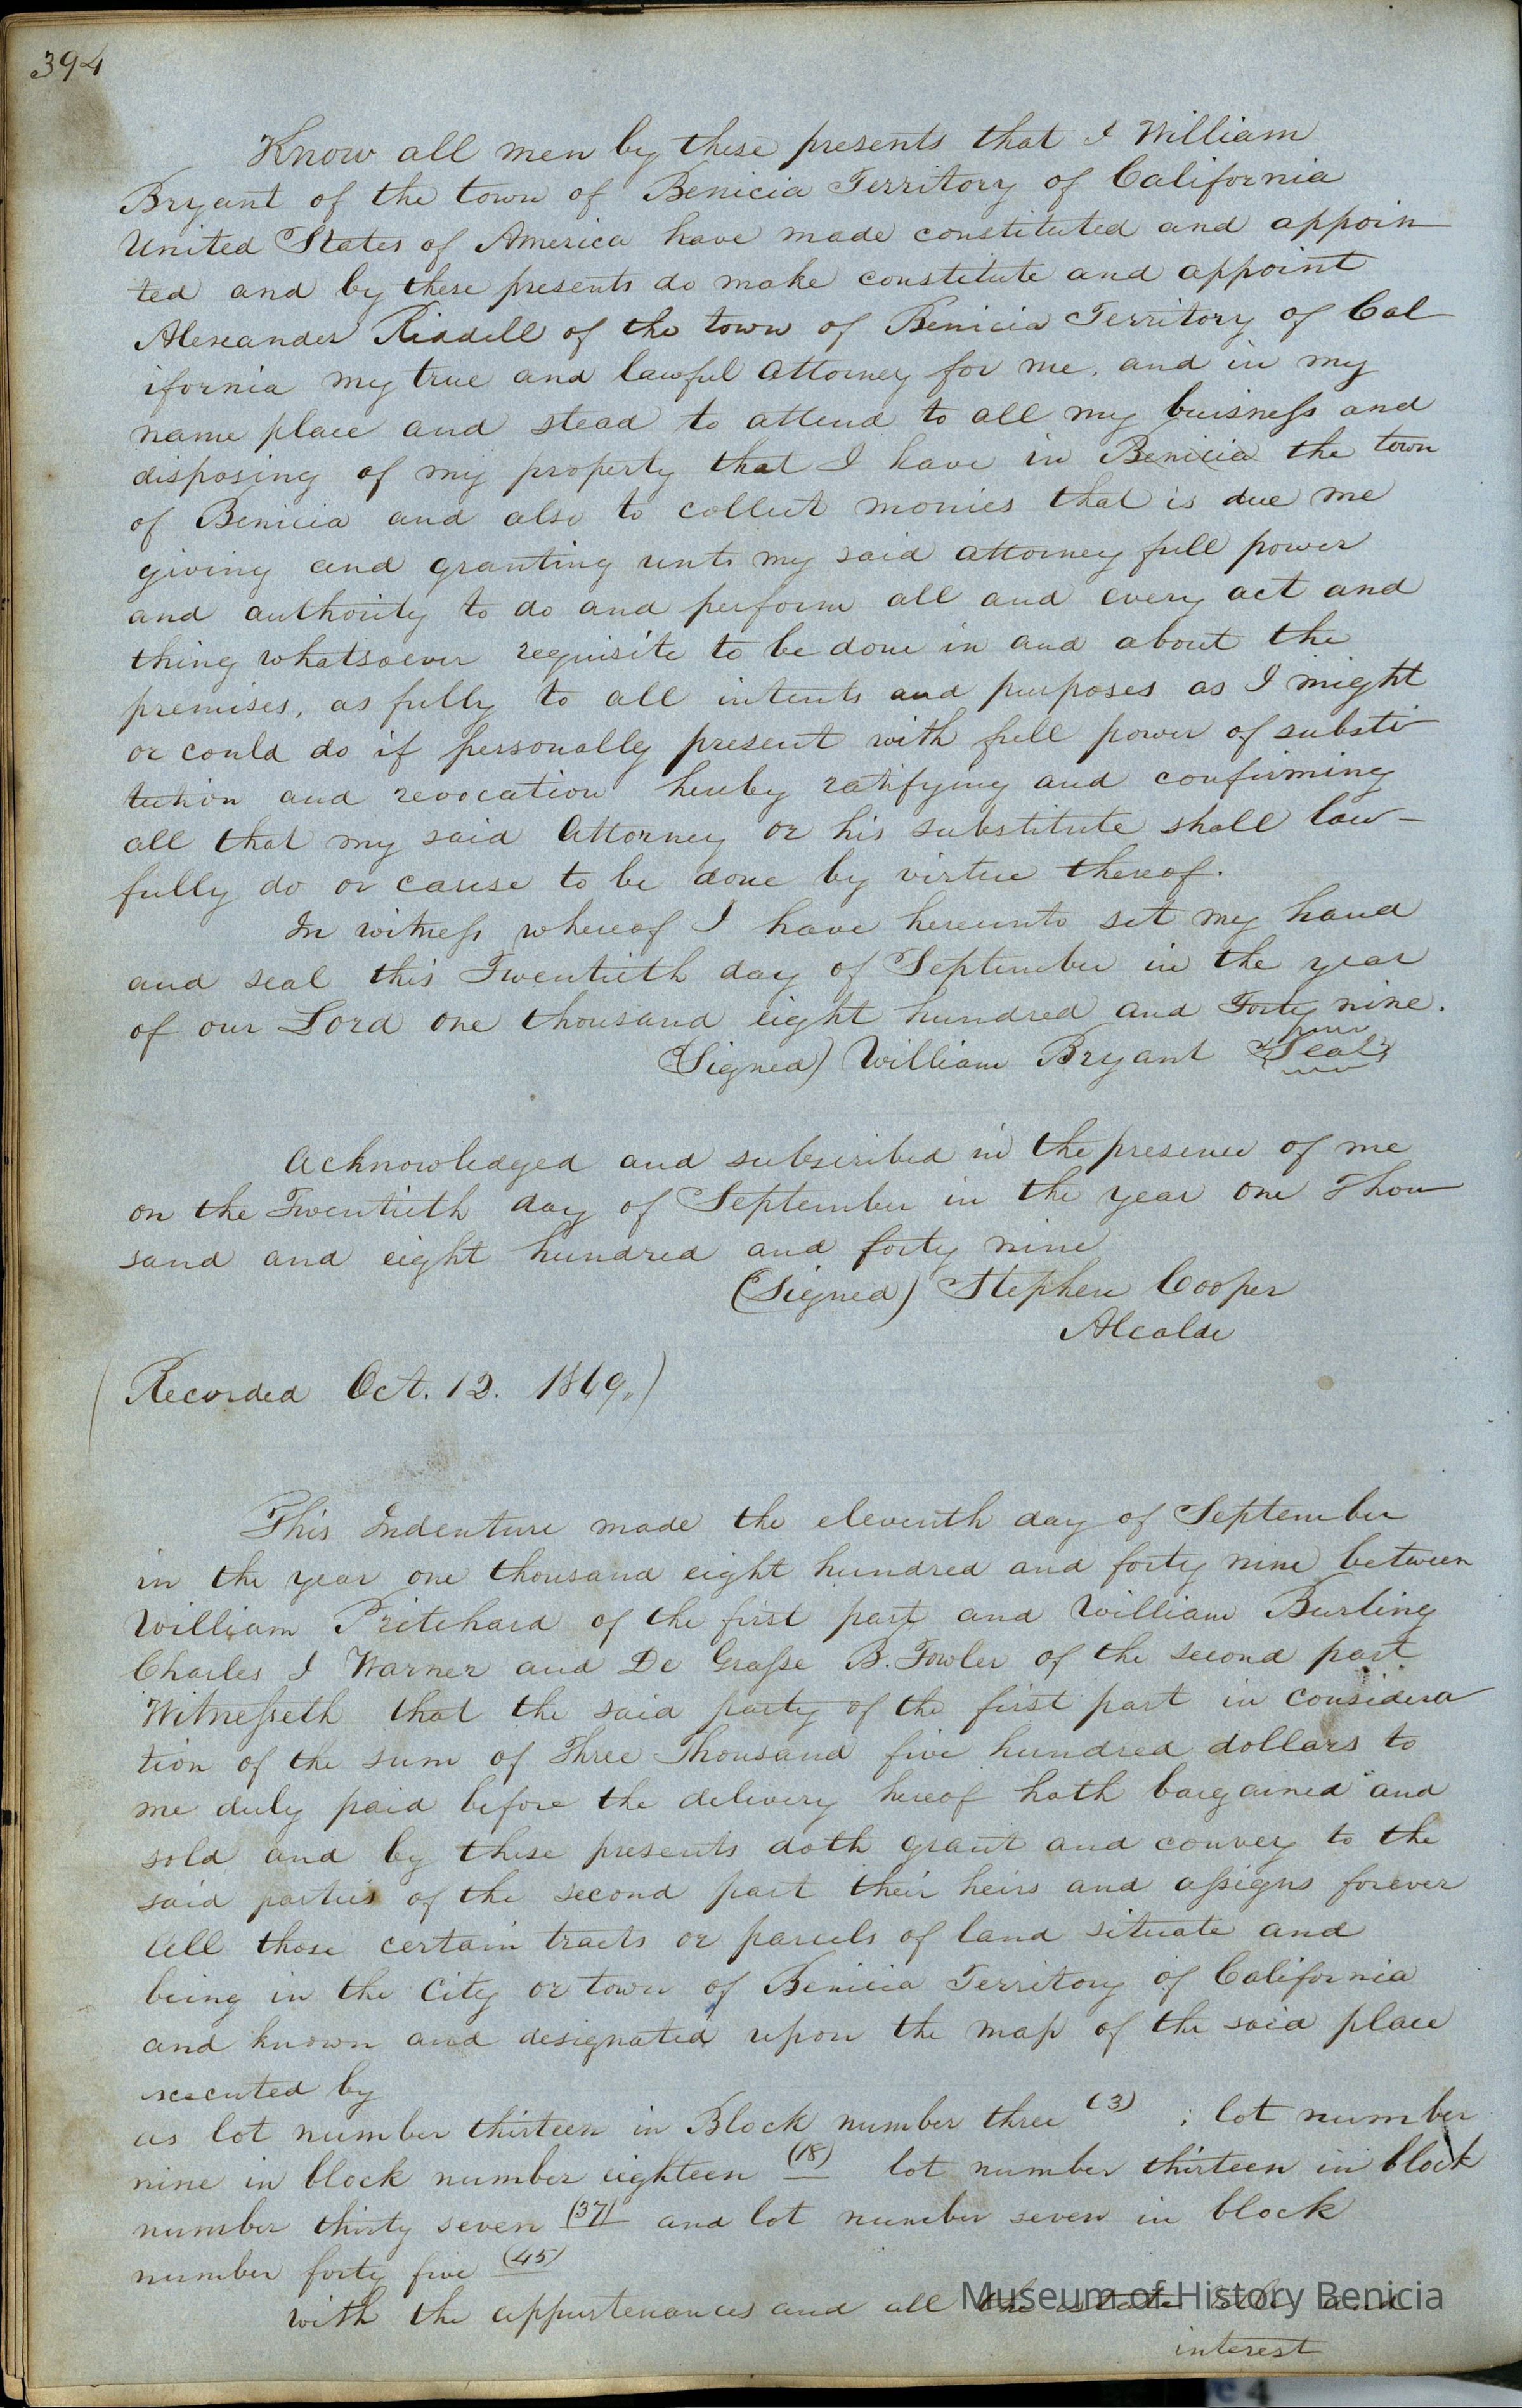 394
Know all men by these presents that I William
Bryant of the town of Benicia Territory of California
United States of America have made constituted and appoin
ted and by these presents do make constitute and appoint
Alexander Riddell of the town of Benicia Territory of Cal
ifornia my true and lawful Attorney for me, and in my
name place and stead to attend to all my buisness and
disposing of my property that I have in Benicia the town
of Benicia and also to collect monies that is due me
giving and granting unto my said attorney full power
and authority to do and perform all and every act and
thing whatsoever requisite to be done in and about the
premises, as fully to all intents and purposes as I might
or could do if personally present with full power of substi
tution and revocation hereby ratifying and confirming
all that my said Attorney or his substitute shall law-
fully do or cause to be done by virtue thereof.
In witness whereof I have hereunto set my hand
and seal this Twentieth day of September in the year
of our Lord one thousand eight hundred and Forty nine.
(Signed) William Bryant Seal
Acknowledged and subscribed in the presence of me
on the Twentieth day of September in the year one Thou
sand and eight hundred and forty nine
(Signed) Stephen Cooper
Alcalde
(Recorded Oct. 12. 1849.)
This Indenture made the eleventh day of September
in the year one thousand eight hundred and forty nine between
William Pritchard of the first part and William Burling
Charles I Warner and De Grasse B. Fowler of the second part
Witnesseth that the said party of the first part in considera
tion of the sum of Three Thousand five hundred dollars to
me duly paid before the delivery hereof hath bargained and
sold and by these presents doth grant and convey to the
said parties of the second part their heirs and assigns forever
All those certain tracts or parcels of land situate and
being in the City or town of Benicia Territory of California
and known and designated upon the map of the said place
executed by
as lot number thirteen in Block number three (3) ; lot number
nine in block number eighteen (18) lot number thirteen in block
number thirty seven (37) and lot number seven in block
number forty five (45)
with the appurtenances and all the estate title and
interest
Museum of History Benicia